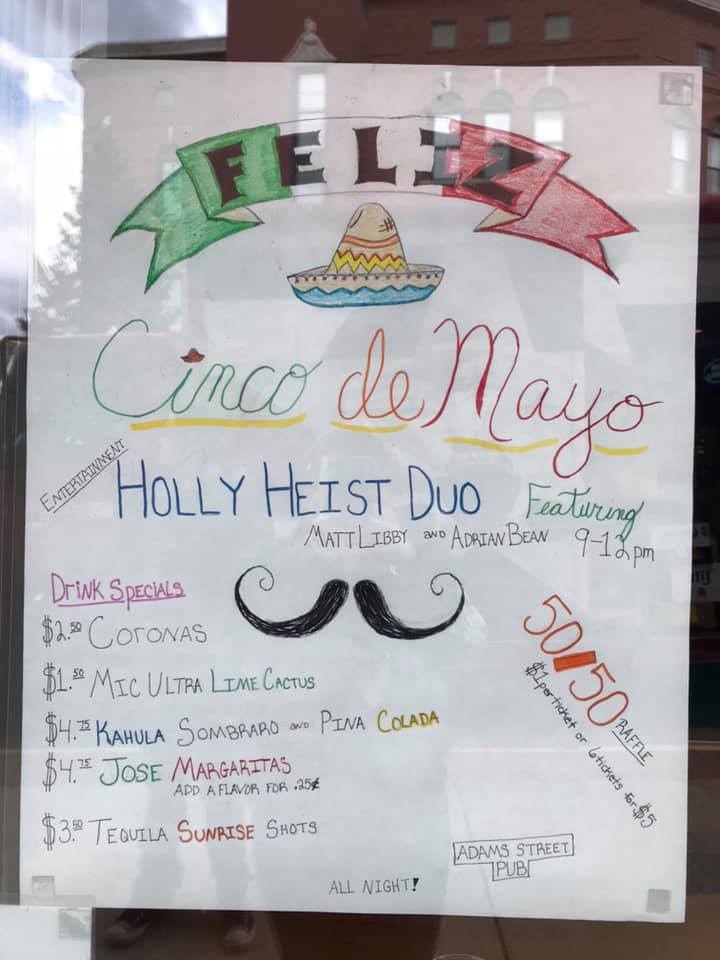 FELIZ
Cinco de Mayo
ENTERTAINMENT
HOLLY HEIST DUO Featuring
MATT LIBBY AND ADRIAN BEAN 9-12pm
DRINK SPECIALS
$2.50 CORONAS
$1.50 MIC ULTRA LIME CACTUS
$4.75 KAHULA SOMBRARO AND PINA COLADA
$4.75 JOSE MARGARITAS
ADD A FLAVOR FOR .25¢
$3.50 TEQUILA SUNRISE SHOTS
50/50 RAFFLE
$1 per ticket or 6 tickets for $5
ADAMS STREET
PUB
ALL NIGHT!